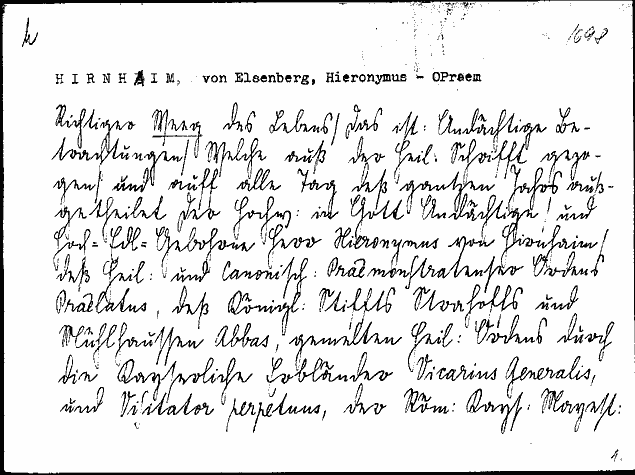 h
1698
HIRNHAIM, von Elsenberg, Hieronymus - OPraem
Richtiger Weeg des Lebens/ Das ist: Andächtige Be-
trachtungen/ Welche auß der Heil: Schrifft gezo-
gen/ und auff alle Tag deß gantzen Jahrs auß-
getheilet Der Hochw: in Gott Andächtige/ und
Hoch-Edl-Gebohrne Herr Hieronymus von Hirnhaim/
deß Heil: und Canonisch: Praemonstratenser Ordens
Praelatus, deß Königl: Stiffts Strahoffs und
Mühlhaussen Abbas, gemelten Heil: Ordens durch
die Kayserliche Erbländer Vicarius Generalis,
und Visitator perpetuus, der Röm: Kays: Mayest:
1.